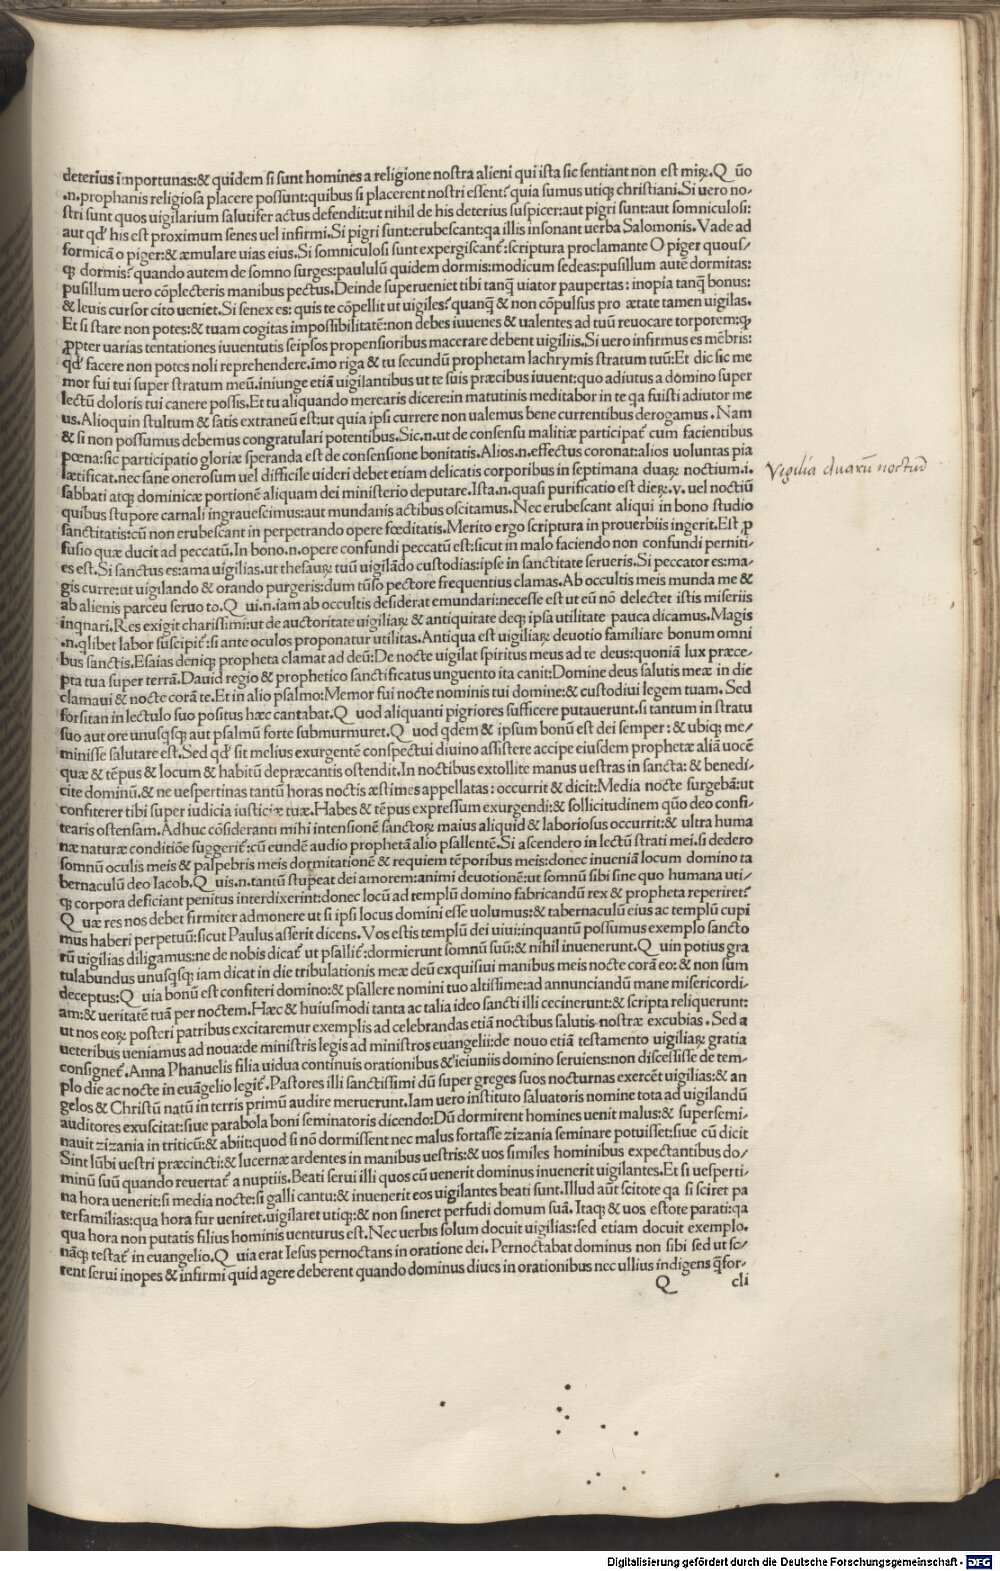 deterius importunas:& quidem si sunt homines a religione nostra alieni qui ista sic sentiant non est miꝝ.Q ūo
.n.prophanis religiosa placere possunt:quibus si placerent nostri essent? quia sumus utiqꝫ christiani.Si uero no-
stri sunt quos uigilarium salutifer actus defendit:ut nihil de his deterius suspicer:aut pigri sunt:aut somniculosi:
aut qd' his est proximum senes uel infirmi.Si pigri sunt:erubescant:qa illis insonant uerba Salomonis. Vade ad
formicā o piger:& æmulare uias eius.Si somniculosi sunt expergiscant':scriptura proclamante O piger quous-
qꝫ dormis? quando autem de somno surges:paululū quidem dormis:modicum sedeas:pusillum autē dormitas:
pusillum uero cōplecteris manibus pectus.Deinde superueniet tibi tanq̄ uiator paupertas: inopia tanq̄ bonus:
& leuis cursor cito ueniet.Si senex es: quis te cōpellit ut uigiles? quanq̄ & non cōpulsus pro ætate tamen uigilas.
Et si stare non potes:& tuam cogitas impossibilitatē:non debes iuuenes & ualentes ad tuū reuocare torporem:qꝫ
ꝓpter uarias tentationes iuuentutis seipsos propensioribus macerare debent uigiliis.Si uero infirmus es mēbris:
qd' facere non potes noli reprehendere.imo riga & tu secundū prophetam lachrymis stratum tuū:Et dic sic me
mor fui tui super stratum meū.iniunge etiā uigilantibus ut te suis præcibus iuuent:quo adiutus a domino super
lectū doloris tui canere possis.Et tu aliquando mercaris dicere:in matutinis meditabor in te qa fuisti adiutor me
us.Alioquin stultum & satis extraneū est:ut quia ipsi currere non ualemus bene currentibus derogamus . Nam
& si non possumus debemus congratulari potentibus.Sic.n.ut de consensu malitiæ participat' cum facientibus
pœna:sic participatio gloriæ speranda est de consensione bonitatis.Alios.n.effectus coronat:alios uoluntas pia
lætificat.nec sane onerosum uel difficile uideri debet etiam delicatis corporibus in septimana duaꝝ noctium.i.
sabbati atqꝫ dominicæ portionē aliquam dei ministerio deputare.Ista.n.quasi purificatio est dieꝝ.v. uel noctiū
quibus stupore carnali ingrauescimus:aut mundanis actibus oscitamus.Nec erubescant aliqui in bono studio
sanctitatis:cū non erubescant in perpetrando opere fœditatis.Merito ergo scriptura in prouerbiis ingerit.Est ꝓ
fusio quæ ducit ad peccatū.In bono.n.opere confundi peccatū est:sicut in malo faciendo non confundi perniti-
es est.Si sanctus es:ama uigilias.ut thesauꝝ tuū uigilādo custodias:ipse in sanctitate serueris.Si peccator es:ma-
gis curre:ut uigilando & orando purgeris:dum tūso pectore frequentius clamas.Ab occultis meis munda me &
ab alienis parce seruo tuo.Q ui.n.iam ab occultis desiderat emundari:necesse est ut eū nō delectet istis miseriis
inqnari.Res exigit charissimi:ut de auctoritate uigiliaꝝ & antiquitate deqꝫ ipsa utilitate pauca dicamus. Magis
.n.qlibet labor suscipit':si ante oculos proponatur utilitas.Antiqua est uigiliaꝝ deuotio familiare bonum omni
bus sanctis.Esaias deniqꝫ propheta clamat ad deū:De nocte uigilat spiritus meus ad te deus:quoniā lux præce-
pta tua super terrā.Dauid regio & prophetico sanctificatus unguento ita canit:Domine deus salutis meæ in die
clamaui & nocte corā te.Et in alio psalmo:Memor fui nocte nominis tui domine:& custodiui legem tuam. Sed
forsitan in lectulo suo positus hæc cantabat.Q uod aliquanti pigriores sufficere putauerunt.si tantum in stratu
suo aut ore unusqsqꝫ aut psalmū forte submurmuret.Q uod qdem & ipsum bonū est dei semper : & ubiqꝫ me-
minisse salutare est.Sed qd' sit melius exurgentē conspectui diuino assistere accipe eiusdem prophetæ aliā uocē
quæ & tēpus & locum & habitū depræcantis ostendit.In noctibus extollite manus uestras in sancta: & benedi-
cite dominū.& ne uespertinas tantū horas noctis æstimes appellatas : occurrit & dicit:Media nocte surgebā:ut
confiterer tibi super iudicia iusticiæ tuæ.Habes & tēpus expressum exurgendi:& sollicitudinem quō deo confi-
tearis ostensam.Adhuc cōsideranti mihi intensionē sanctoꝝ maius aliquid & laboriosus occurrit:& ultra huma
næ naturæ conditiōe suggerit':cū eundē audio prophetā alio psallentē.Si ascendero in lectū strati mei.si dedero
somnū oculis meis & palpebris meis dormitationē & requiem tēporibus meis:donec inueniā locum domino ta
bernaculū deo Iacob.Q uis.n.tantū stupeat dei amorem:animi deuotionē:ut somnū sibi sine quo humana uti-
qꝫ corpora deficiant penitus interdixerint:donec locū ad templū domino fabricandū rex & propheta reperiret?
Q uæ res nos debet firmiter admonere ut si ipsi locus domini esse uolumus:& tabernaculū eius ac templū cupi
mus haberi perpetuū:sicut Paulus asserit dicens.Vos estis templū dei uiui:inquantū possumus exemplo sancto
rū uigilias diligamus:ne de nobis dicat' ut psallit':dormierunt somnū suū:& nihil inuenerunt.Q uin potius gra
tulabundus unusqsqꝫ iam dicat in die tribulationis meæ deū exquisiui manibus meis nocte corā eo:& non sum
deceptus:Q uia bonū est confiteri domino:& psallere nomini tuo altissime:ad annunciandū mane misericordi-
am:& ueritatē tuā per noctem.Hæc & huiusmodi tanta ac talia ideo sancti illi cecinerunt:& scripta reliquerunt:
ut nos eoꝝ posteri patribus excitaremur exemplis ad celebrandas etiā noctibus salutis nostræ excubias . Sed a
ueteribus ueniamus ad noua:de ministris legis ad ministros euangelii:de nouo etiā testamento uigiliaꝝ gratia
consignet'.Anna Phanuelis filia uidua continuis orationibus & ieiuniis domino seruiens:non discessisse de tem-
plo die ac nocte in euāgelio legit'.Pastores illi sanctissimi dū super greges suos nocturnas exercēt uigilias:& an
gelos & Christū natū in terris primū audire meruerunt.Iam uero instituto saluatoris nomine tota ad uigilandū
auditores exuscitat:siue parabola boni seminatoris dicendo:Dū dormirent homines uenit malus:& supersemi-
nauit zizania in triticū:& abiit:quod si nō dormissent nec malus fortasse zizania seminare potuisset:siue cū dicit
Sint lūbi uestri præcincti:& lucernæ ardentes in manibus uestris:& uos similes hominibus expectantibus do-
minū suū quando reuertat' a nuptiis.Beati serui illi quos cū uenerit dominus inuenerit uigilantes.Et si uesperti-
na hora uenerit:si media nocte:si galli cantu:& inuenerit eos uigilantes beati sunt.Illud aūt scitote qa si sciret pa
terfamilias:qua hora fur ueniret.uigilaret utiqꝫ:& non sineret perfudi domum suā. Itaqꝫ & uos estote parati:qa
qua hora non putatis filius hominis uenturus est.Nec uerbis solum docuit uigilias:sed etiam docuit exemplo.
nāqꝫ testat' in euangelio.Q uia erat Iesus pernoctans in oratione dei. Pernoctabat dominus non sibi sed ut sc-
rent serui inopes & infirmi quid agere deberent quando dominus diues in orationibus nec ullius indigens q̄for-
Q cli
Vigilia duarū noctuū
Digitalisierung gefördert durch die Deutsche Forschungsgemeinschaft - DFG